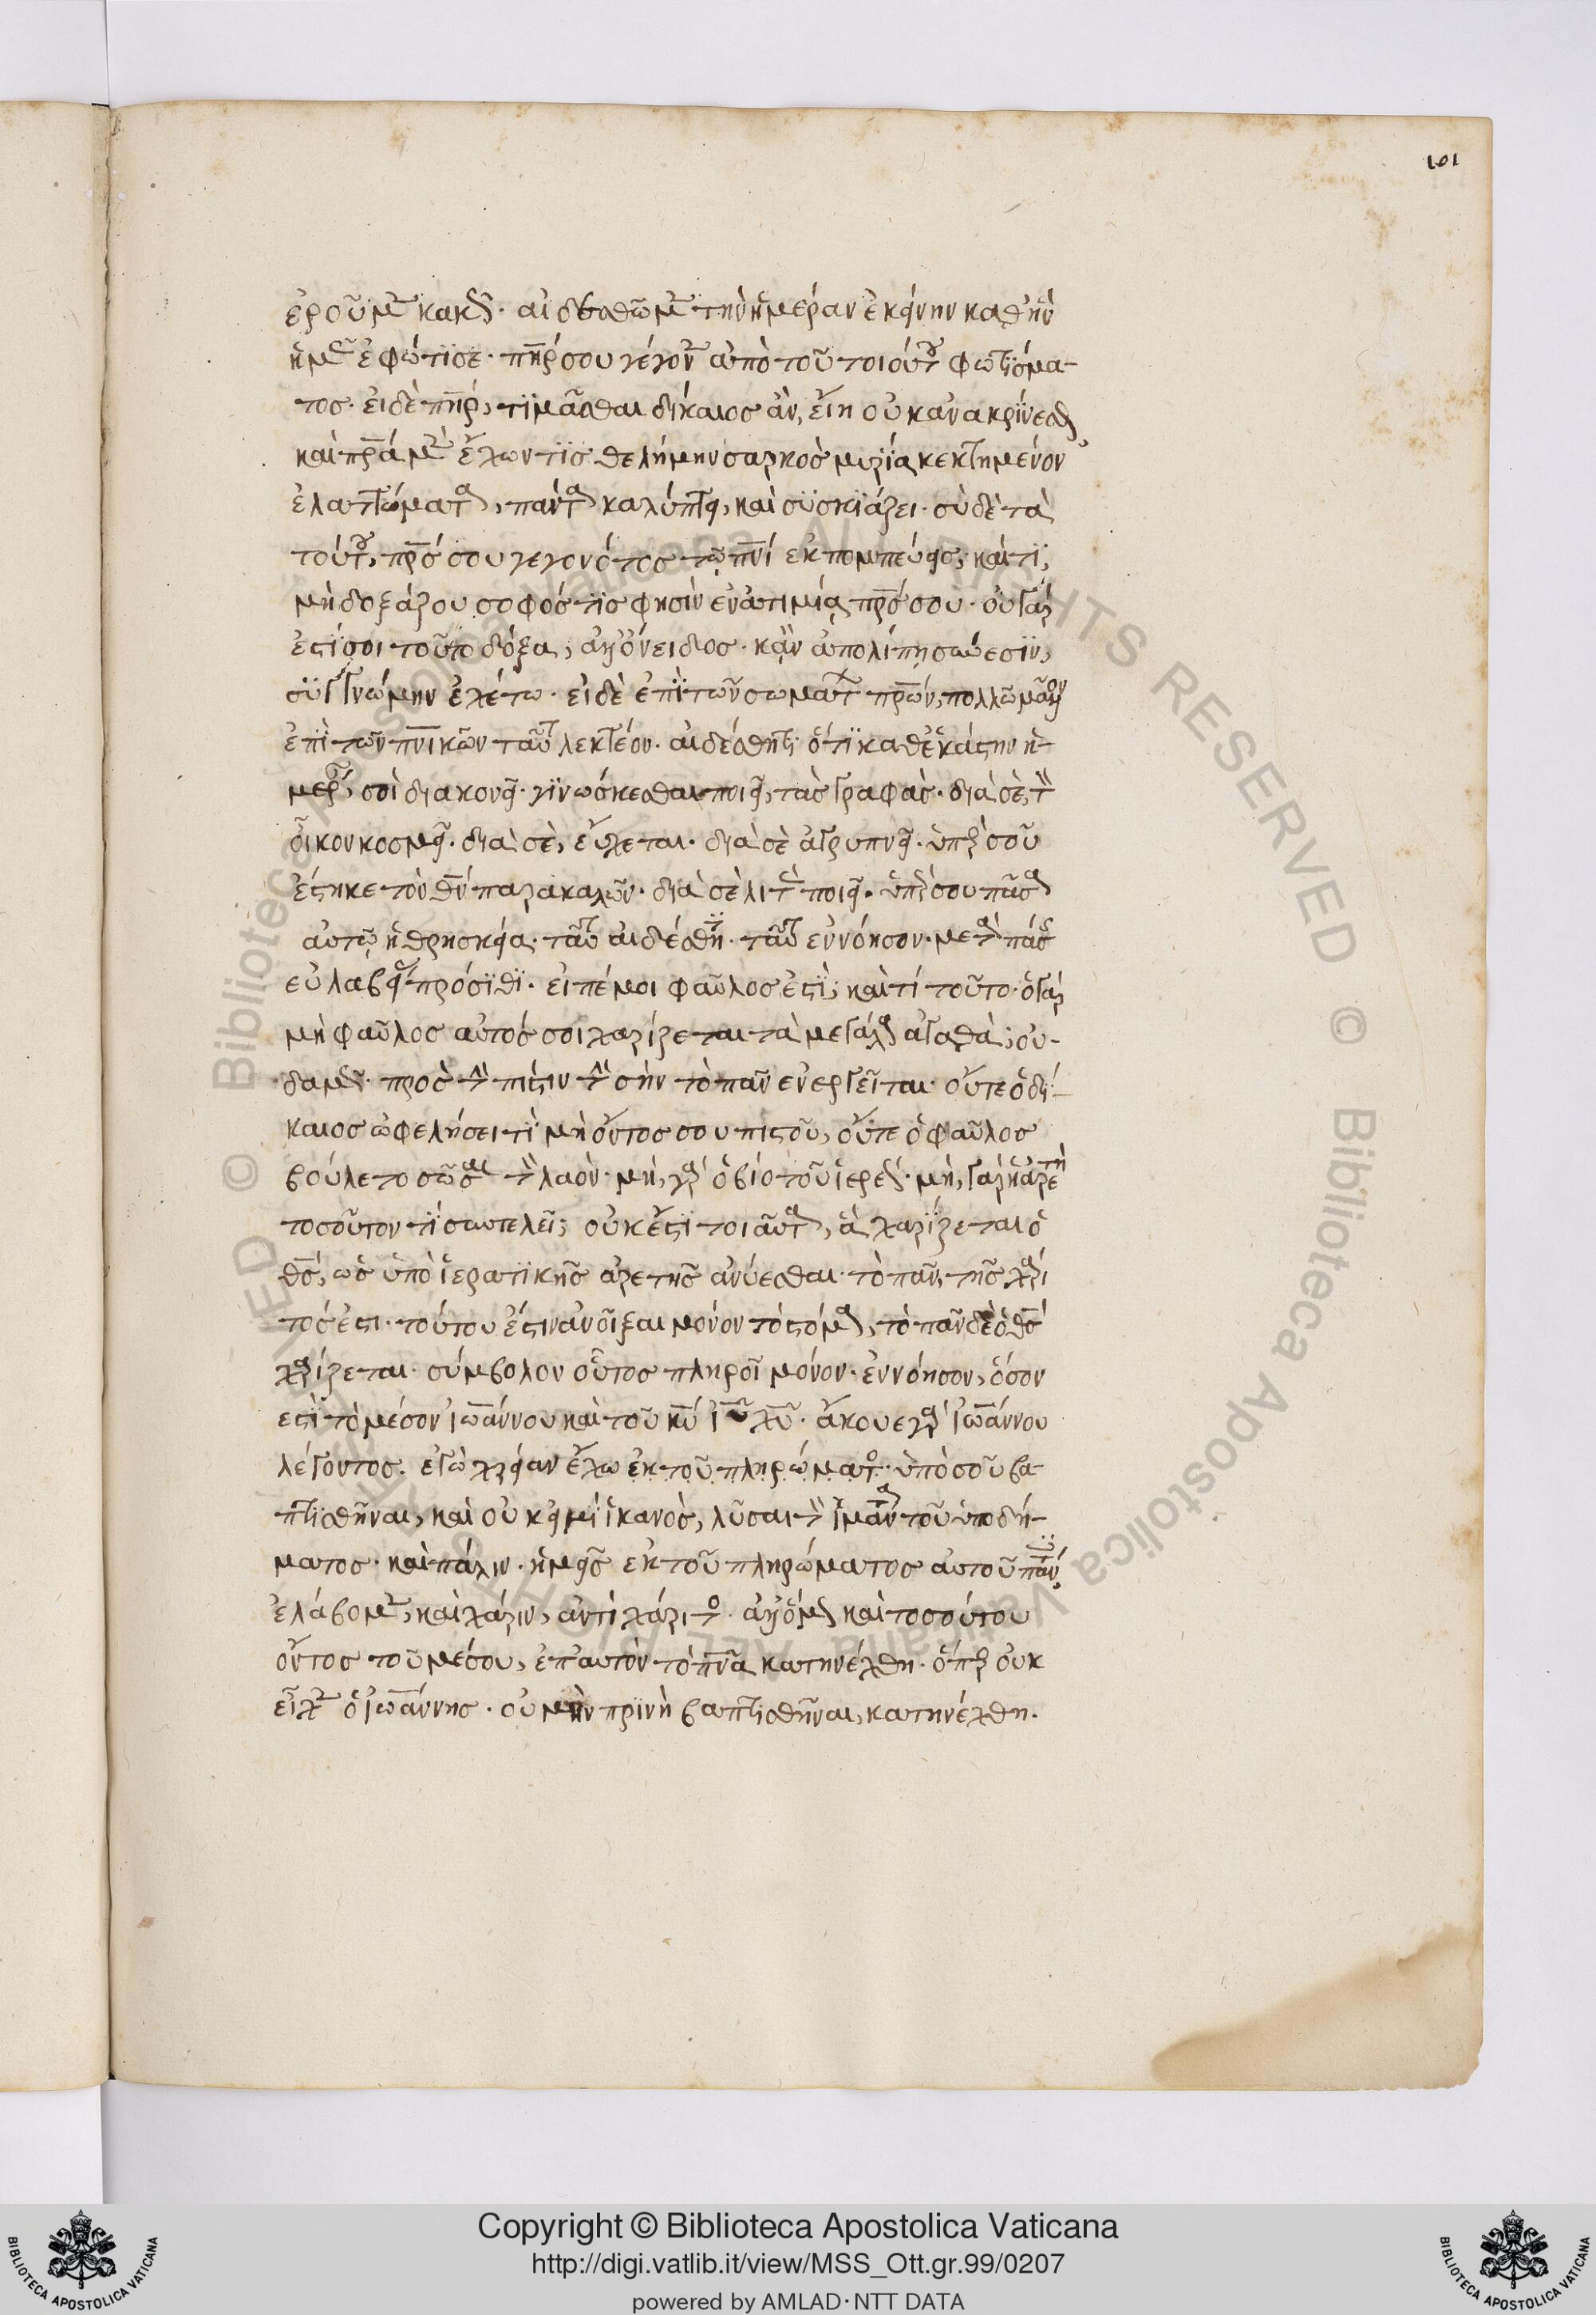 101
ἐροῦμεν κακῶς· αἰδεσθῶμεν τὴν ἡμέραν ἐκείνην καθ' ἣν
ἡμᾶς ἐφώτισε· πῆρ σου γέγονεν ἀπὸ τοῦ τοιούτου φωτίσμα-
τος· εἰ δὲ πῆρ, τιμᾶσθαι δίκαιος ἂν εἴη οὐκ ἀνακρίνεσθαι
καὶ πρα μὲν ἔχων τις θελήμην σαρκὸς μυρία κεκτημένον
ἐλαττώματα, πάντα καλύπτει, καὶ συσκιάζει· σὺ δὲ τὰ
τούτου, πρς σου γεγονότος τῷ πνι ἐκπομπεύεις; καίτι,
μὴ δοξάζου σοφός τις φησὶν ἐν ἀτιμίᾳ πρς σου· οὐ γάρ
ἐστί σοι τοῦτο δόξα, ἀλλ' ὄνειδος· κἂν ἀπολίπῃ σύνεσιν,
συγγνώμην ἐχέτω· εἰ δὲ ἐπὶ τῶν σωματικῶν πρων, πολλῷ μᾶλλον
ἐπὶ τῶν πνικῶν ταῦτα λεκτέον· αἰδέσθητι ὅτι καθ' ἑκάστην ἡ-
μέραν, σοὶ διακονεῖ· γινώσκεσθαι ποιεῖ, τὰς γραφάς· διὰ σὲ, τὸν
οἶκον κοσμεῖ· διὰ σὲ, εὔχεται· διὰ σὲ ἀγρυπνεῖ· ὑπὲρ σοῦ
ἕστηκε τὸν θν παρακαλῶν· διὰ σὲ λιτὰς ποιεῖ· ὑπέρ σου πᾶσα
αὐτῷ ἡ θρησκεία· ταῦτα αἰδέσθητι· ταῦτα ἐννόησον· μετὰ πάσης
εὐλαβείας πρόσιθι· εἰπέ μοι φαῦλος ἐστί; καὶ τί τοῦτο· ὁ γὰρ
μὴ φαῦλος αὐτός σοι χαρίζεται τὰ μεγάλα ἀγαθά; οὐ-
δαμῶς· πρὸς τὴν πίστιν τὴν σὴν τὸ πᾶν ἐνεργεῖται· οὔτε ὁ δί-
καιος ὠφελήσει τὶ μὴ ὄντος σου πιστοῦ, οὔτε ὁ φαῦλος
βούλετο σῶσαι τὸν λαόν· μὴ, γὰρ ὁ βίο τοῦ ἱερέως· μὴ, γὰρ ἡ ἀρετὴ
τοσοῦτον τί συντελεῖ; οὐκ ἔστι τοιαῦτα, ἃ χαρίζεται ὁ
θς, ὡς ὑπὸ ἱερατικῆς ἀρετῆς ἀνύεσθαι· τὸ πᾶν, τῆς χάρι
τός ἐστι· τούτου ἐστὶν ἀνοῖξαι μόνον τὸ στόμα, τὸ πᾶν δὲ ὁ θς
χαρίζεται· σύμβολον οὗτος πληροῖ μόνον· ἐννόησον, ὅσον
ἐστὶ τὸ μέσον ἰωάννου καὶ τοῦ κυ ἰυ χυ· ἄκουε γὰρ ἰωάννου
λέγοντος. ἐγὼ χρείαν ἔχω ἐκ τοῦ πληρώματος· ὑπὸ σοῦ βα-
πτισθῆναι, καὶ οὐκ εἰμὶ ἱκανὸς, λῦσαι τὸν ἱμάντα τοῦ ὑποδή-
ματος· καὶ πάλιν· ἡμεῖς ἐκ τοῦ πληρώματος αὐτοῦ πάντες
ἐλάβομεν, καὶ χάριν, ἀντὶ χάριτος· ἀλλ' ὅμως καὶ τοσούτου
ὄντος τοῦ μέσου, ἐπ' αὐτὸν τὸ πνα κατηνέχθη· ὅπερ οὐκ
εἶχεν ὁ ἰωάννης· οὐ μὴν πρινὴ βαπτισθῆναι, κατηνέχθη.
Copyright © Biblioteca Apostolica Vaticana
http://digi.vatlib.it/view/MSS_Ott.gr.99/0207
powered by AMLAD·NTT DATA